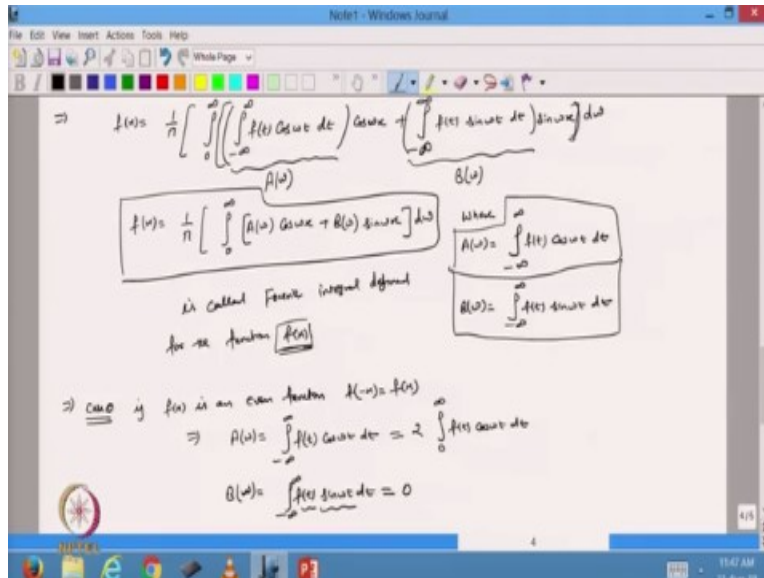 Note1 - Windows Journal
File Edit View Insert Actions Tools Help
Whole Page
B I
⇒ f(x) = 1/π [ ∫_0^∞ [ ( ∫_{-∞}^∞ f(t) Cosωt dt ) Cosωx + ( ∫_{-∞}^∞ f(t) sinωt dt ) sinωx ] dω
A(ω) B(ω)
f(x) = 1/π [ ∫_0^∞ [A(ω) Cosωx + B(ω) sinωx ] dω
where
A(ω) = ∫_{-∞}^∞ f(t) Cosωt dt
B(ω) = ∫_{-∞}^∞ f(t) sinωt dt
is called Fourier integral defined
for the function f(x)
⇒ case if f(x) is an even function f(-x) = f(x)
⇒ A(ω) = ∫_{-∞}^∞ f(t) Cosωt dt = 2 ∫_0^∞ f(t) cosωt dt
B(ω) = ∫_{-∞}^∞ f(t) sinωt dt = 0
NPTEL
4
4/5
11:47 AM